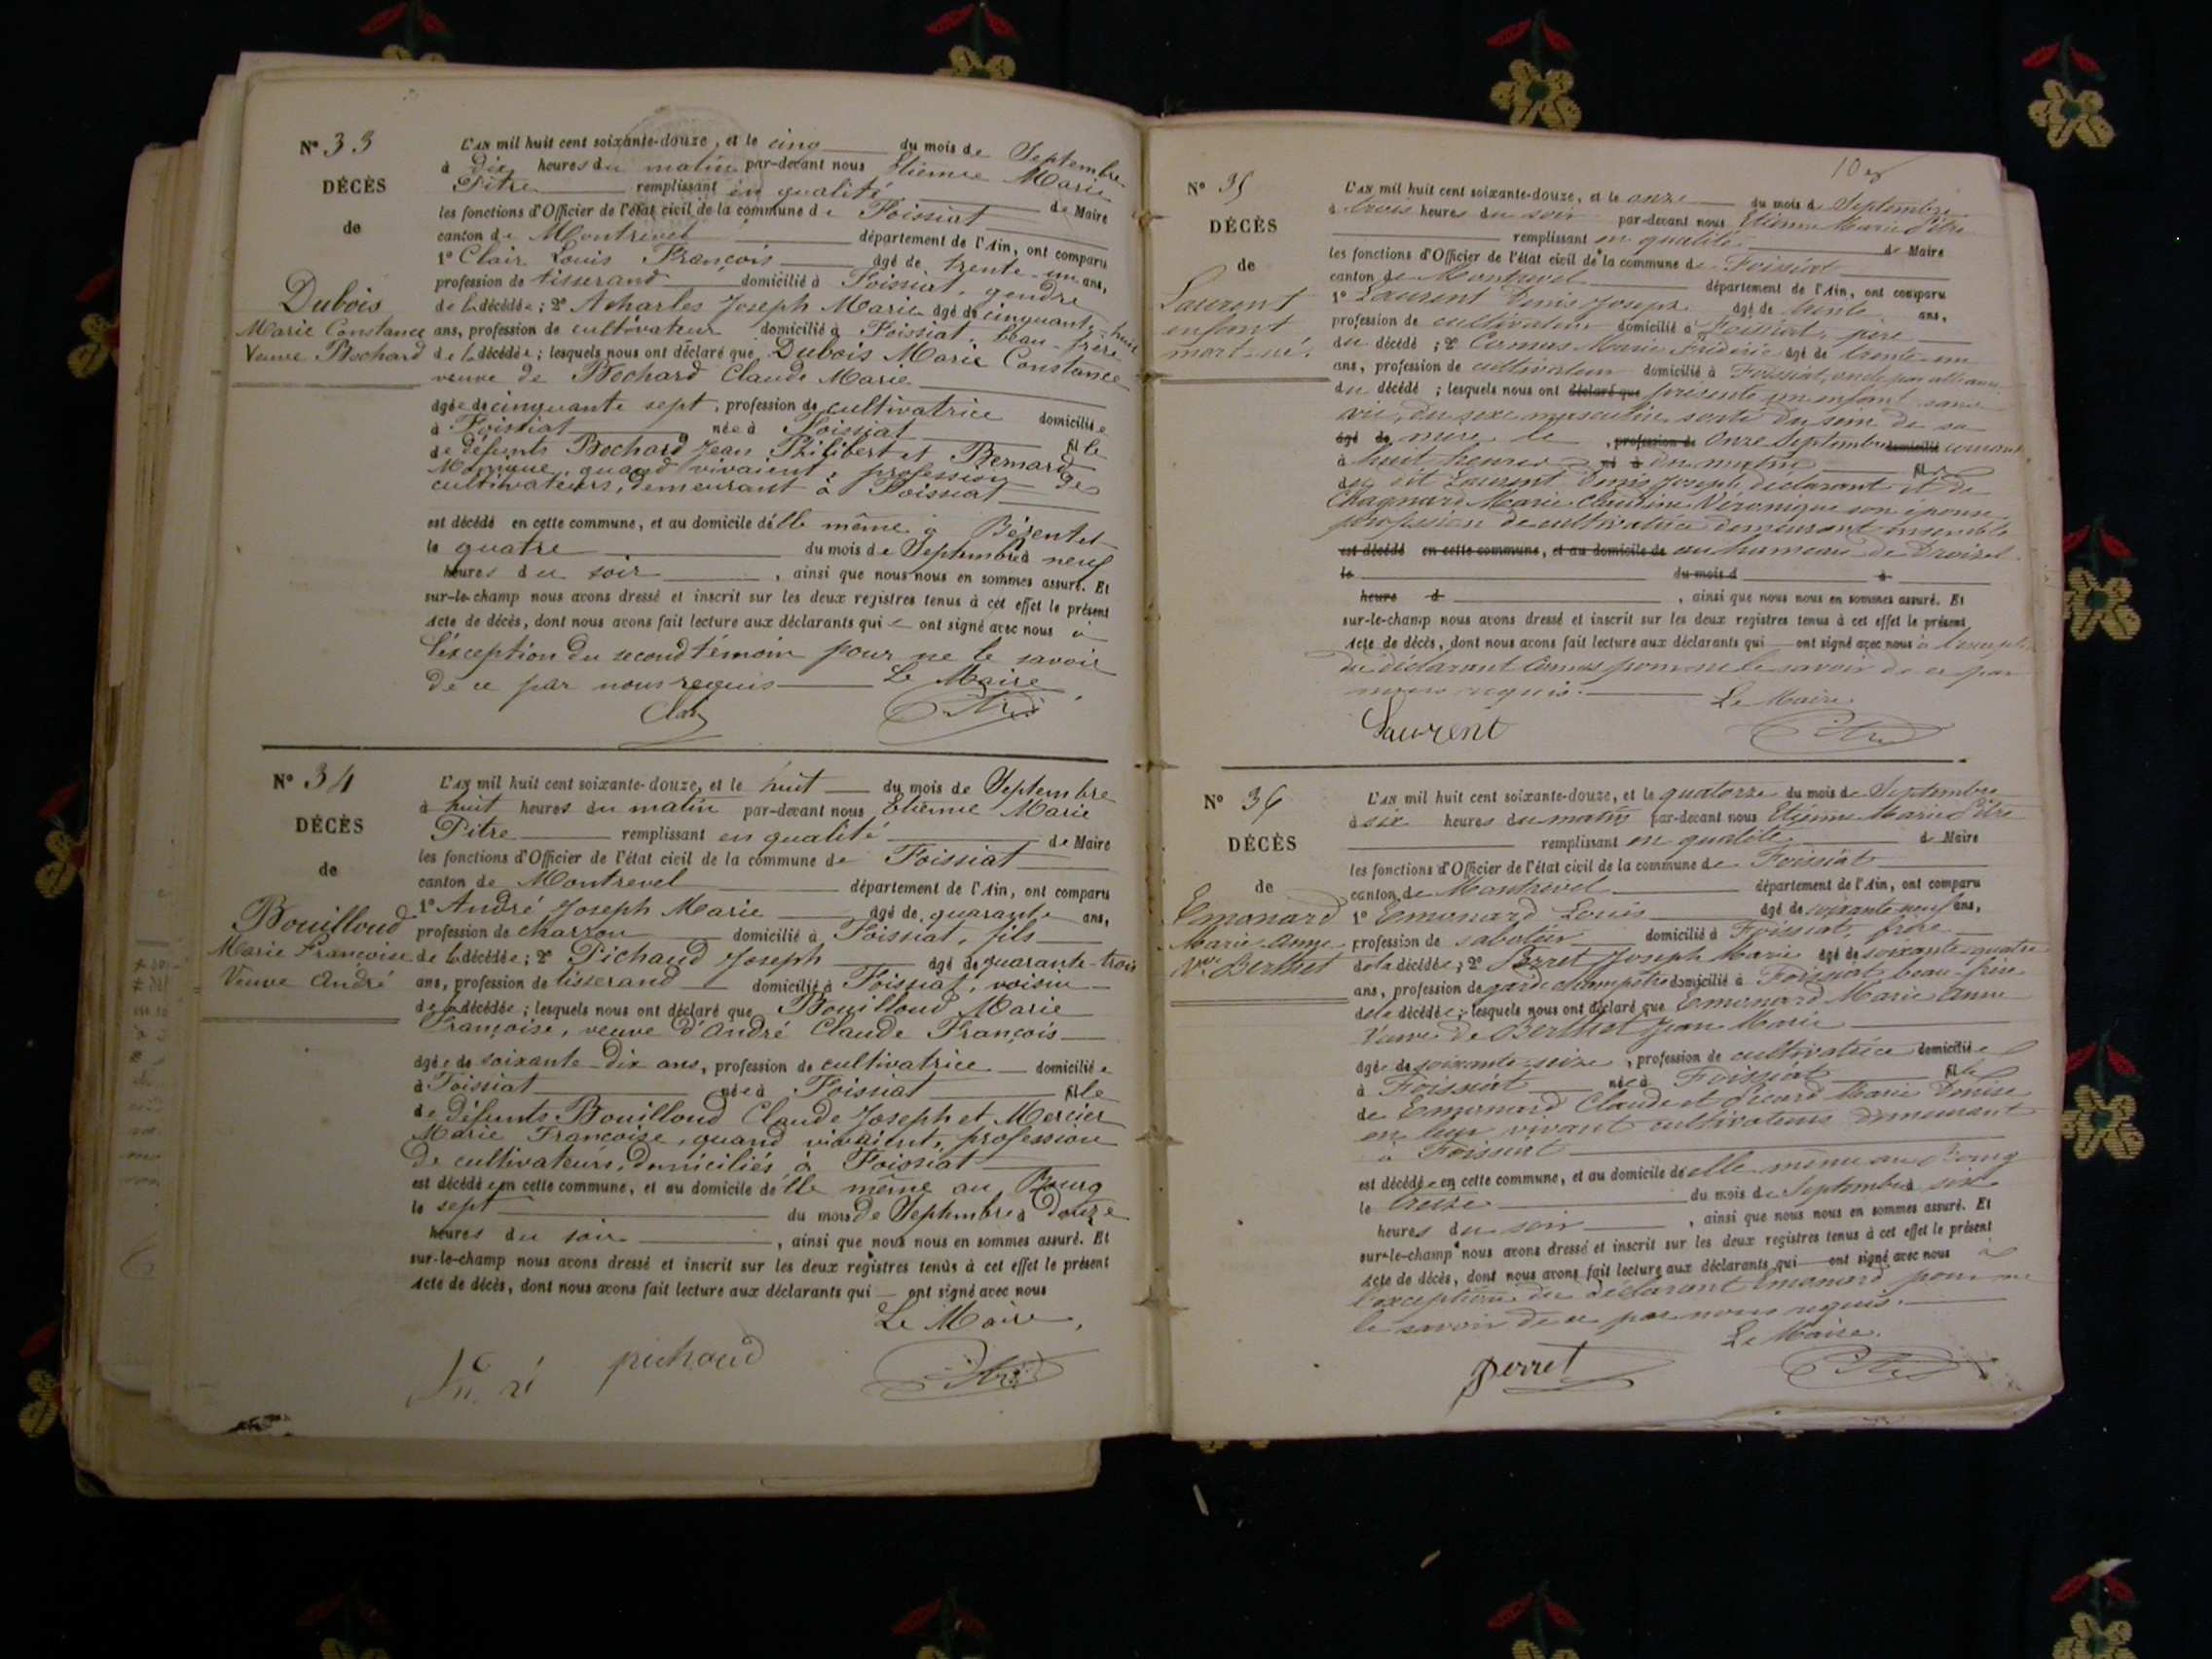 N° 33
DÉCÈS
de
Dubois
Marie Constance
Veuve Bochard
L'AN mil huit cent soixante-douze, et le cinq du mois de Septembre
à dix heures du matin par-devant nous Etienne Marie
Pitre remplissant en qualité de Maire
les fonctions d'Officier de l'état civil de la commune de Foissiat
canton de Montrevel département de l'Ain, ont comparu
1° Clair Louis François âgé de trente-un ans,
profession de tisserand domicilié à Foissiat, gendre
de la décédée; 2° Acharles Joseph Marie âgé de cinquante-huit
ans, profession de cultivateur domicilié à Foissiat, beau-frère
de la décédée; lesquels nous ont déclaré que Dubois Marie Constance
veuve de Bochard Claude Marie
âgée de cinquante sept, profession de cultivatrice domiciliée
à Foissiat née à Foissiat fille
de défunts Bochard Jean Philibert et Bernard
quand vivaient, profession de
cultivateurs, demeurant à Foissiat
est décédé en cette commune, et au domicile d'elle même à Bézentet
le quatre du mois de Septembre à neuf
heures du soir, ainsi que nous nous en sommes assuré. Et
sur-le-champ nous avons dressé et inscrit sur les deux registres tenus à cet effet le présent
Acte de décès, dont nous avons fait lecture aux déclarants qui ont signé avec nous à
l'exception du second témoin pour ne le savoir
de ce par nous requis Le Maire
Clair Pitre
N° 34
DÉCÈS
de
Bouilloud
Marie Françoise
Veuve André
L'AN mil huit cent soixante-douze, et le huit du mois de Septembre
à huit heures du matin par-devant nous Etienne Marie
Pitre remplissant en qualité de Maire
les fonctions d'Officier de l'état civil de la commune de Foissiat
canton de Montrevel département de l'Ain, ont comparu
1° André Joseph Marie âgé de quarante ans,
profession de charron domicilié à Foissiat, fils
de la décédée; 2° Pichaud Joseph âgé de quarante-trois
ans, profession de tisserand domicilié à Foissiat, voisin
de la décédée; lesquels nous ont déclaré que Bouilloud Marie
Françoise, veuve d'André Claude François
âgée de soixante-dix ans, profession de cultivatrice domiciliée
à Foissiat née à Foissiat fille
de défunts Bouilloud Claude Joseph et Mercier
Marie Françoise, quand vivaient, profession
de cultivateurs, domiciliés à Foissiat
est décédée en cette commune, et au domicile d'elle même au Bourg
le sept du mois de Septembre à douze
heures du soir, ainsi que nous nous en sommes assuré. Et
sur-le-champ nous avons dressé et inscrit sur les deux registres tenus à cet effet le présent
Acte de décès, dont nous avons fait lecture aux déclarants qui ont signé avec nous
Le Maire,
pichaud Pitre
10
N° 35
DÉCÈS
de
Laurent
enfant
mort-né
L'AN mil huit cent soixante-douze, et le onze du mois de Septembre
à trois heures du soir par-devant nous Etienne Marie Pitre
remplissant en qualité de Maire
les fonctions d'Officier de l'état civil de la commune de Foissiat
canton de Montrevel département de l'Ain, ont comparu
1° Laurent Denis Joseph âgé de trente ans,
profession de cultivateur domicilié à Foissiat, père
du décédé; 2° Comas Marie Frédéric âgé de trente-un
ans, profession de cultivateur domicilié à Foissiat, oncle par alliance
du décédé; lesquels nous ont déclaré que présenté un enfant sans
vie, du sexe masculin sorti du sein de sa
âgé de mère le profession de onze Septembre domicilié courant
à huit heures né à du matin fils
du dit Laurent Denis Joseph déclarant et de
Chagnard Marie Claudine Véronique son épouse
profession de cultivatrice demeurant ensemble
est décédé en cette commune, et au domicile de au hameau de
le du mois d à
heure d, ainsi que nous nous en sommes assuré. Et
sur-le-champ nous avons dressé et inscrit sur les deux registres tenus à cet effet le présent
Acte de décès, dont nous avons fait lecture aux déclarants qui ont signé avec nous à l'exception
du déclarant Comas pour ne le savoir de ce par
nous requis. Le Maire
Laurent Pitre
N° 36
DÉCÈS
de
Emonard
Marie Anne
Vve Berthet
L'AN mil huit cent soixante-douze, et le quatorze du mois de Septembre
à six heures du matin par-devant nous Etienne Marie Pitre
remplissant en qualité de Maire
les fonctions d'Officier de l'état civil de la commune de Foissiat
canton de Montrevel département de l'Ain, ont comparu
1° Emonard Louis âgé de soixante-neuf ans,
profession de sabotier domicilié à Foissiat, frère
de la décédée; 2° Perret Joseph Marie âgé de soixante-quatre
ans, profession de garde champêtre domicilié à Foissiat beau-frère
de la décédée; lesquels nous ont déclaré que Emonard Marie Anne
Veuve de Berthet Jean Marie
âgée de soixante-seize, profession de cultivatrice domiciliée
à Foissiat née à Foissiat fille
de Emonard Claude et Marie Denise
en leur vivant cultivateurs demeurant
à Foissiat
est décédée en cette commune, et au domicile d'elle même au Bourg
le treize du mois de Septembre à six
heures du soir, ainsi que nous nous en sommes assuré. Et
sur-le-champ nous avons dressé et inscrit sur les deux registres tenus à cet effet le présent
Acte de décès, dont nous avons fait lecture aux déclarants qui ont signé avec nous à
l'exception du déclarant Emonard pour ne
le savoir de ce par nous requis.
Le Maire.
Perret Pitre